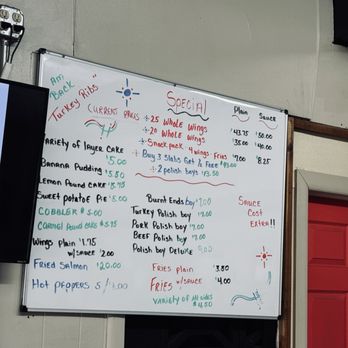 Am
Back
"Turkey Ribs"
Current Prices
Special
Plain Sauce
25 Whole Wings $43.75 $50.00
20 Whole Wings $35.00 $40.00
Snack pack 4 wings Fries $7.00 $8.25
Buy 3 Slabs Get 1 Free
2 polish boys
Variety of layer Cake
$5.00
Banana Pudding
$5.50
Lemon Pound Cake
Sweet potatoe Pie $5.00
Cobbler $5.00
Caramel Pound Cake
Wings plain $1.75
w/sauce $2.00
Fried Salmon $20.00
Hot Peppers
Burnt Ends boy
Turkey Polish boy
Pork Polish boy
Beef Polish boy
Polish boy Deluxe
Sauce
Cost
Extra!!
Fries plain $3.50
Fries w/sauce $4.00
Variety of
$4.50